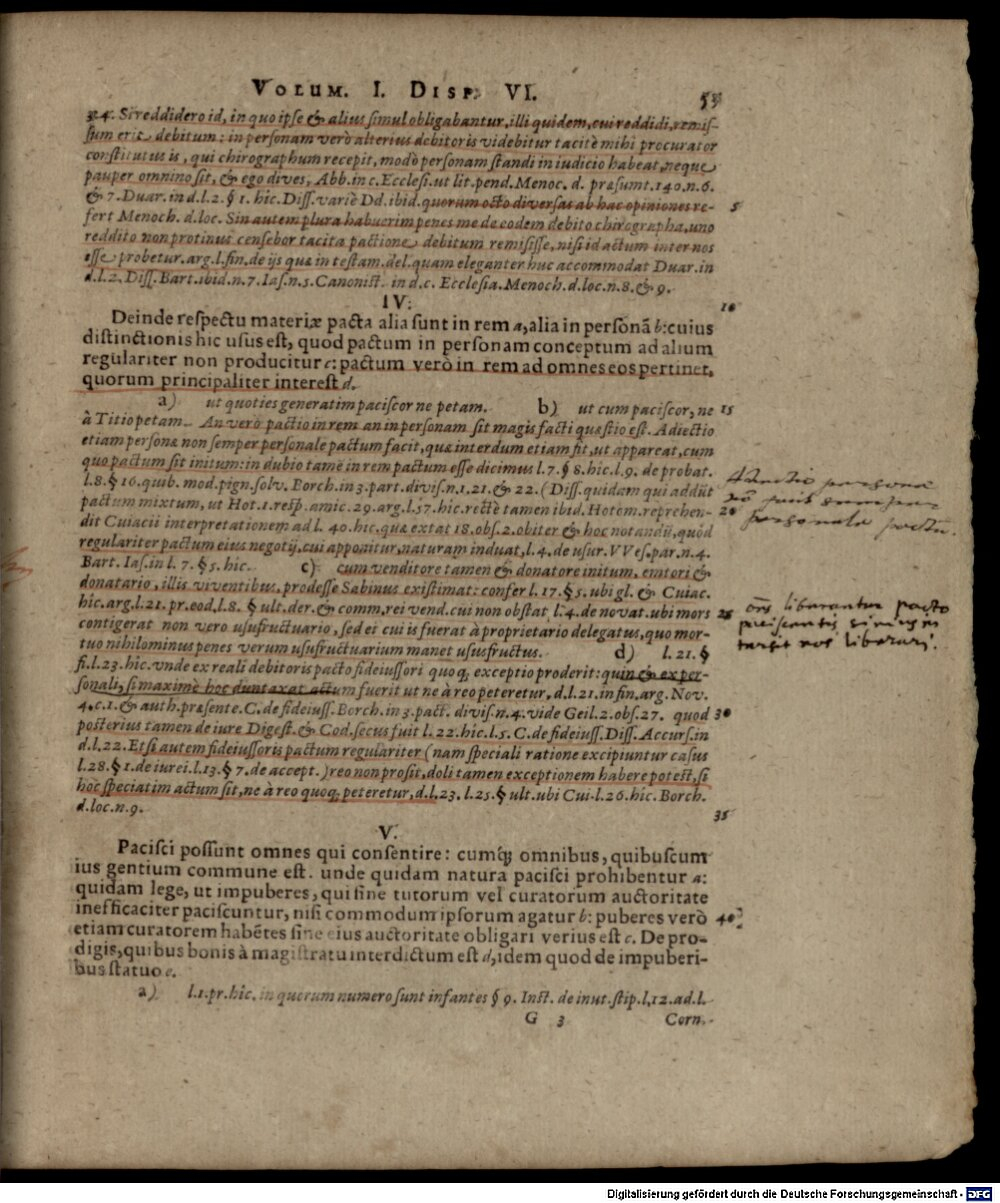 VOLUM. I. DISP. VI. 53
3.4. Si reddidero id, in quo ipse & alius simul obligabantur, illi quidem, cui reddidi, remis-
sum erit debitum: in personam verò alterius debitoris videbitur tacitè mihi procurator
constitutus is, qui chirographum recepit, modò personam standi in iudicio habeat, neque
pauper omnino sit, & ego dives, Abb. in c. Ecclesi. ut lit. pend. Menoc. d. præsumt. 140. n. 6.
& 7. Duar. in d. l. 2. § 1. hic. Diss. variè Dd. ibid. quorum octo diversas ab hac opiniones re- 5
fert Menoch. d. loc. Sin autem plura habuerim penes me de eodem debito chirographa, uno
reddito non protinus censebor tacita pactione debitum remisisse, nisi id actum inter nos
esse probetur. arg. l. fin. de ijs quæ in testam. del. quam eleganter huc accommodat Duar. in
d. l. 2. Diss. Bart. ibid. n. 7. Ias. n. 5. Canonist. in d. c. Ecclesia. Menoch. d. loc. n. 8. & 9.
IV. 10
Deinde respectu materiæ pacta alia sunt in rem a, alia in personã b: cuius
distinctionis hic usus est, quod pactum in personam conceptum ad alium
regulariter non producitur c: pactum verò in rem ad omnes eos pertinet,
quorum principaliter interest d.
a) ut quoties generatim paciscor ne petam. b) ut cum paciscor, ne 15
à Titio petam. An verò pactio in rem an in personam sit magis facti quæstio est. Adiectio
etiam personæ non semper personale pactum facit, quæ interdum etiam fit, ut appareat, cum
quo pactum sit initum: in dubio tamẽ in rem pactum esse dicimus l. 7. § 8. hic. l. 9. de probat.
l. 8. § 16. quib. mod. pign. solv. Borch. in 3. part. divis. n. 1, 21. & 22. (Diss. quidam qui addũt
pactum mixtum, ut Hot. 1. resp. amic. 29. arg. l. 57. hic. rectè tamen ibid. Hotom. reprehen- 20
dit Cuiacii interpretationem ad l. 40. hic. quæ extat 18. obs. 2. obiter & hoc notandũ, quòd
regulariter pactum eius negotij, cui apponitur, naturam induat, l. 4. de usur. VVes. par. n. 4.
Bart. Ias. in l. 7. § 5. hic. c) cum venditore tamen & donatore initum, emtori &
donatario, illis viventibus, prodesse Sabinus existimat: confer l. 17. § 5. ubi gl. & Cuiac.
hîc. arg. l. 21. pr. eod. l. 8. § ult. der. & comm. rei vend. cui non obstat l. 4. de novat. ubi mors 25
contigerat non vero usufructuario, sed ei cui is fuerat à proprietario delegatus, quo mor-
tuo nihilominus penes verum usufructuarium manet ususfructus. d) l. 21. §
fi. l. 23. hic. unde ex reali debitoris pacto fideiussori quoq; exceptio proderit: quin & ex per-
sonali, si maximè hoc duntaxat actum fuerit ut ne à reo peteretur, d. l. 21. in fin. arg. Nov.
4. c. 1. & auth. præsente. C. de fideiuss. Borch. in 3. pact. divis. n. 4. vide Geil. 2. obs. 27. quod 30
posterius tamen de iure Digest. & Cod. secus fuit l. 22. hic. l. 5. C. de fideiuss. Diss. Accurs. in
d. l. 22. Et si autem fideiussoris pactum regulariter (nam speciali ratione excipiuntur casus
l. 28. § 1. de iurei. l. 13. § 7. de accept.) reo non prosit, doli tamen exceptionem habere potest, si
hoc speciatim actum sit, ne à reo quoq; peteretur, d. l. 23. l. 25. § ult. ubi Cui. l. 26. hic. Borch.
d. loc. n. 9. 35
V.
Pacisci possunt omnes qui consentire: cumq; omnibus, quibuscum
ius gentium commune est. unde quidam natura pacisci prohibentur a:
quidam lege, ut impuberes, qui sine tutorum vel curatorum auctoritate
inefficaciter paciscuntur, nisi commodum ipsorum agatur b: puberes verò 40
etiam curatorem habẽtes sine eius auctoritate obligari verius est c. De pro-
digis, quibus bonis à magistratu interdictum est d, idem quod de impuberi-
bus statuo e.
a) l. 1. pr. hic. in quorum numero sunt infantes § 9. Inst. de inut. stip. l, 12. ad. l.
G 3 Corn.
personæ
semper
personale pactũ.
liberantur pacto
liberari.
Digitalisierung gefördert durch die Deutsche Forschungsgemeinschaft - DFG